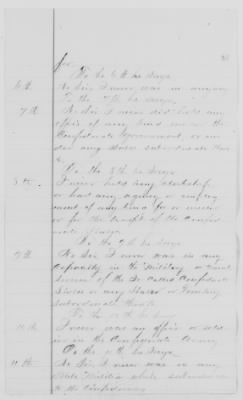 for
To the 6th he says
6th No Sir, I never was in any way
To the 7th he says,
7th No Sir I never did hold any
office of any kind under the
Confederate Government, or un
der any State subordinate there
to.
To the 8th he says
8th I never held any clerkship
or had any agency or employ
ment of any kind for or under
or for the benefit of the Confed
erate States.
To the 9th he says
9th No Sir, I never was in any
Capacity in the Military or Naval
Service of the So Called Confederate
States or any State or Territory
Subordinate thereto
To the 10th he says
10th I never was an officer or soldi
er in the Confederate Army
To the 11th he says
11th No Sir, I never was in any
State Militia while subordinate
to the Confederacy